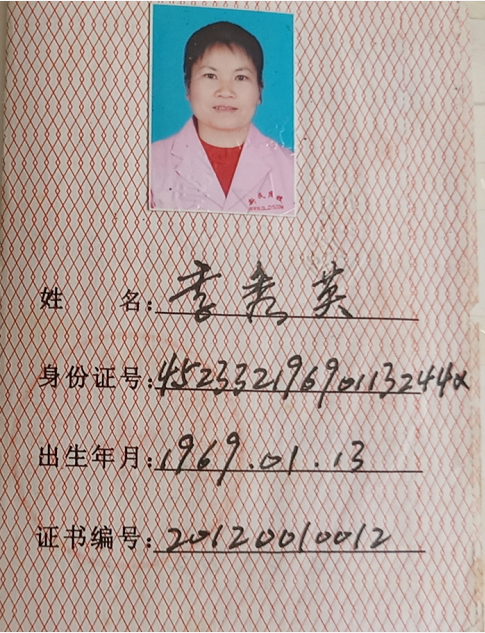 姓 名：李秀英
身份证号：45233219690113244X
出生年月：1969.01.13
证书编号：20120010012